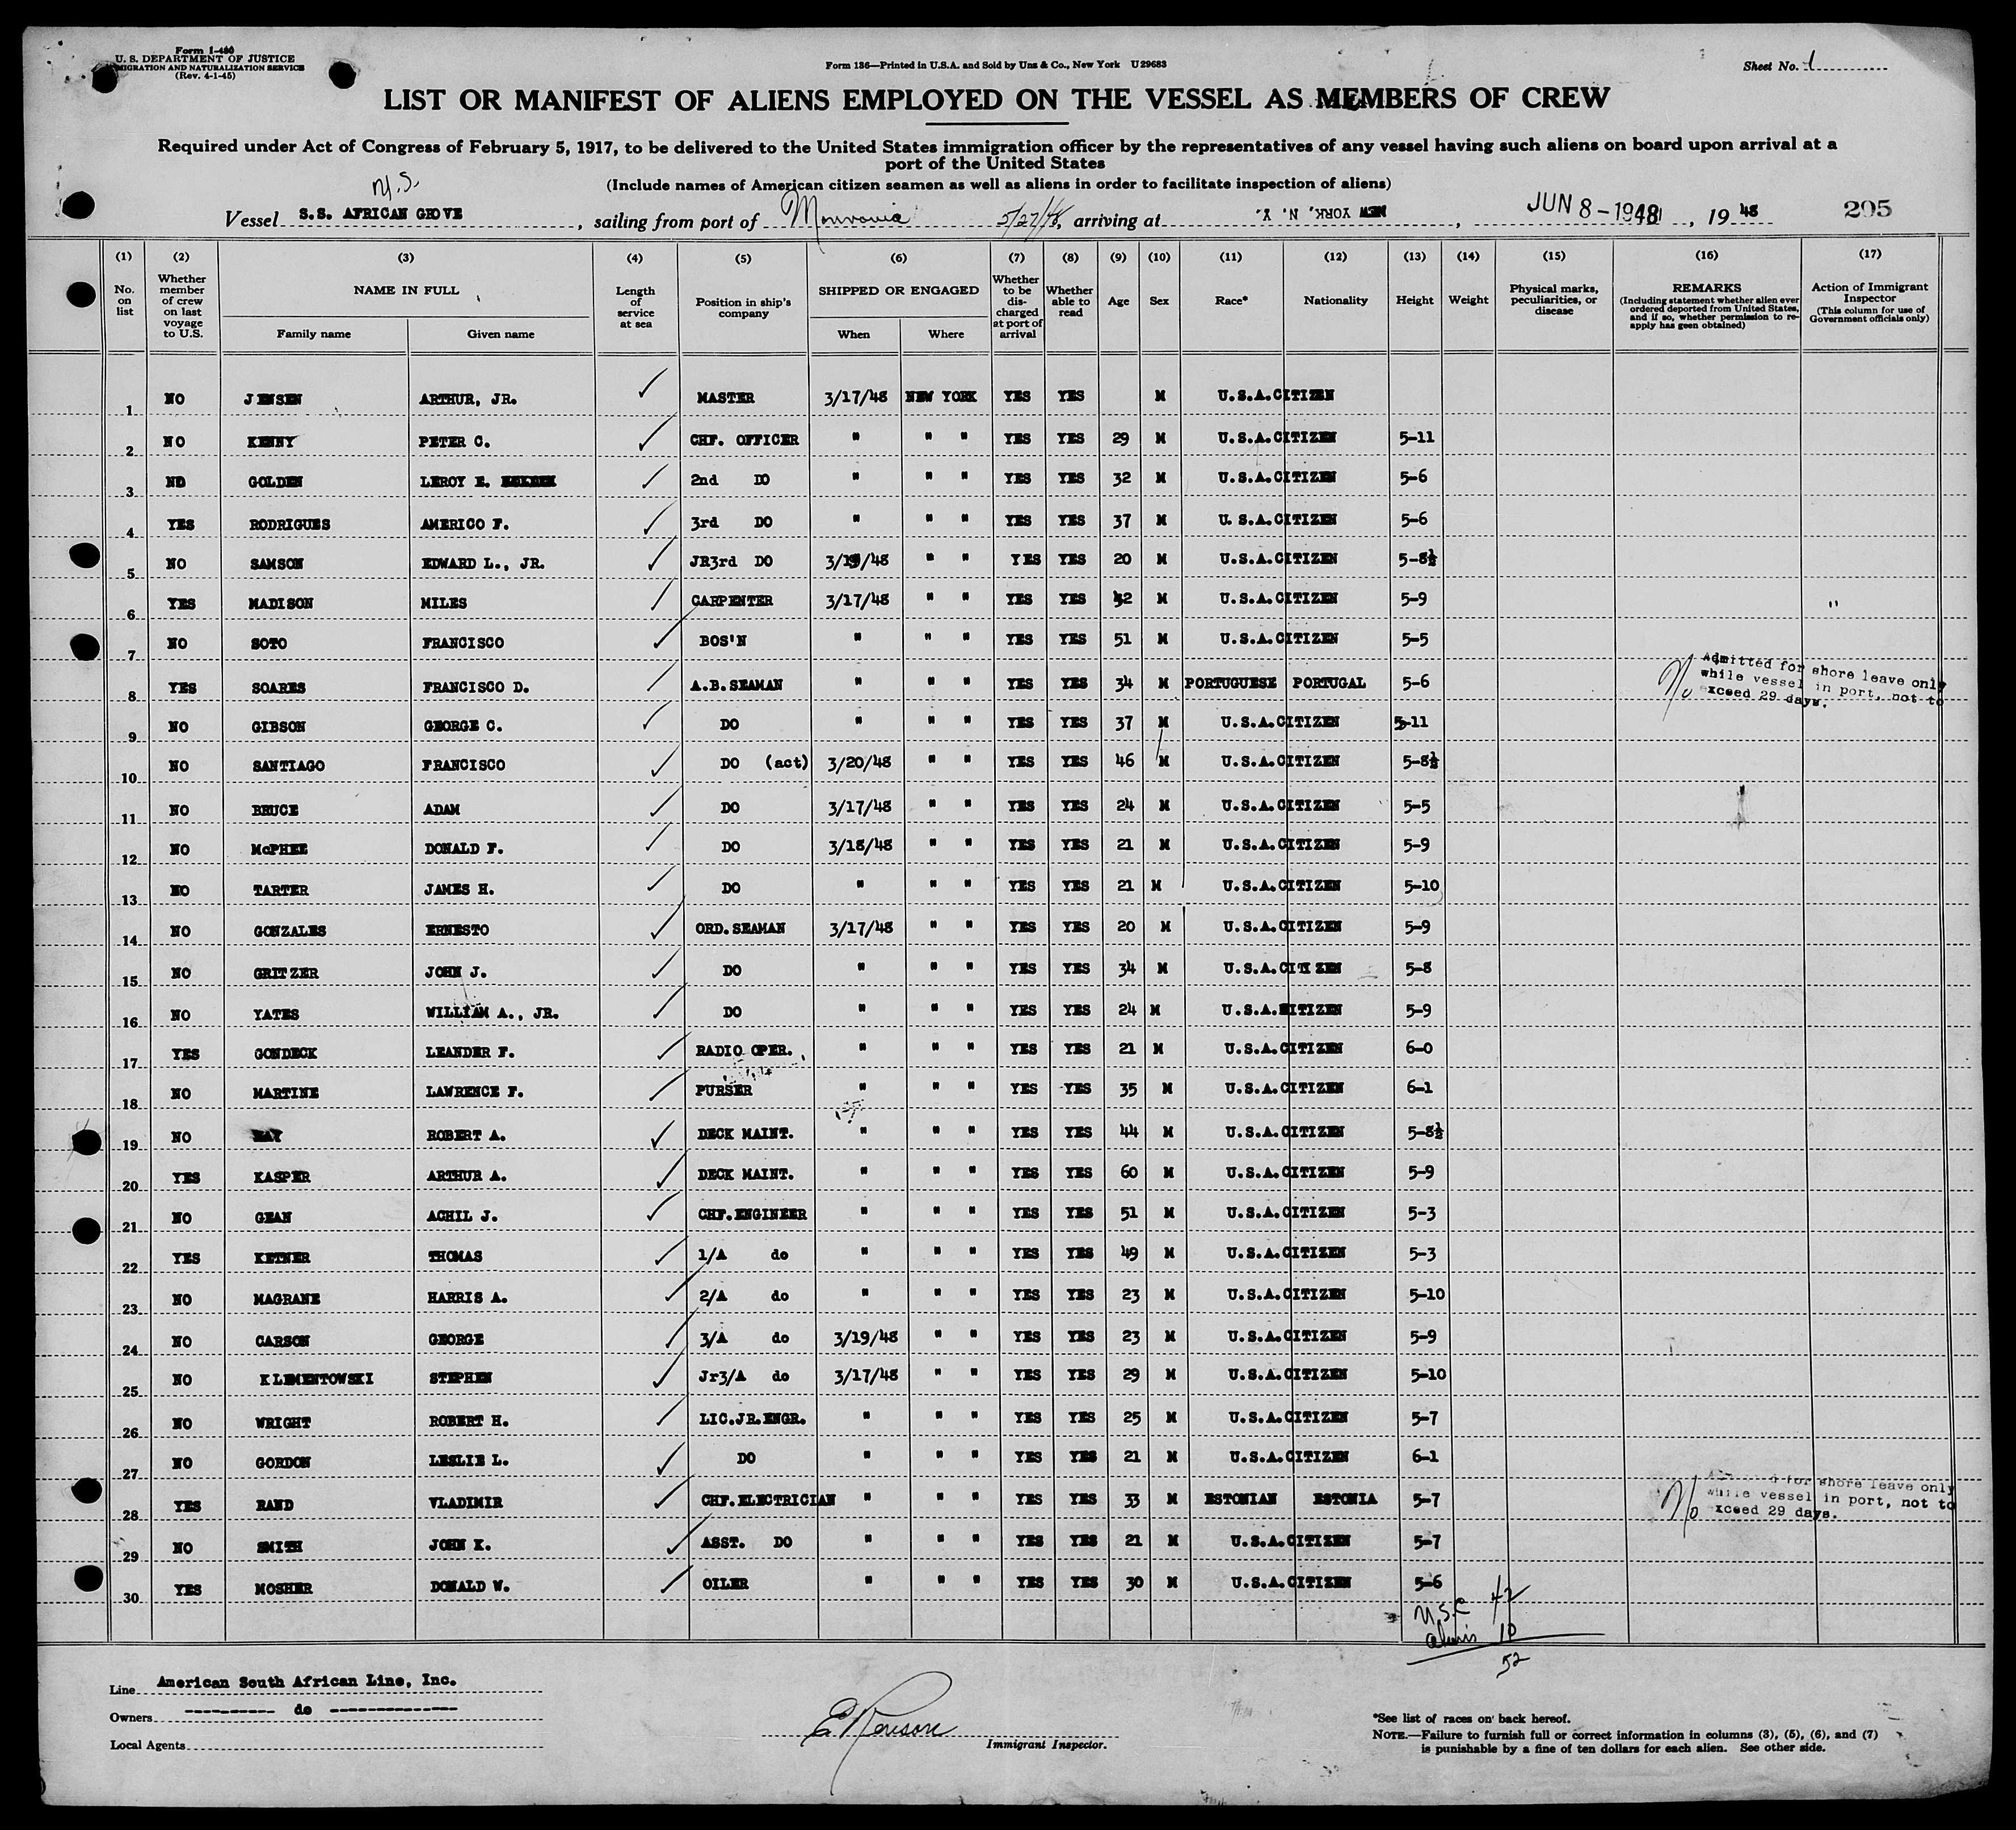 Form I-480
U. S. DEPARTMENT OF JUSTICE
IMMIGRATION AND NATURALIZATION SERVICE
(Rev. 4-1-45)
Form 136—Printed in U.S.A. and Sold by Unz & Co., New York U 29683
Sheet No. 1
LIST OR MANIFEST OF ALIENS EMPLOYED ON THE VESSEL AS MEMBERS OF CREW
Required under Act of Congress of February 5, 1917, to be delivered to the United States immigration officer by the representatives of any vessel having such aliens on board upon arrival at a
port of the United States
(Include names of American citizen seamen as well as aliens in order to facilitate inspection of aliens)
Vessel S.S. AFRICAN GROVE, sailing from port of Monrovia 5/27/48, arriving at NEW YORK, N. Y., JUN 8-1948, 19 48 205
(1) (2) (3) (4) (5) (6) (7) (8) (9) (10) (11) (12) (13) (14) (15) (16) (17)
No. on list
Whether member of crew on last voyage to U.S.
NAME IN FULL
Family name Given name
Length of service at sea
Position in ship's company
SHIPPED OR ENGAGED
When Where
Whether to be discharged at port of arrival
Whether able to read
Age Sex Race* Nationality Height Weight
Physical marks, peculiarities, or disease
REMARKS
(Including statement whether alien ever ordered deported from United States, and if so, whether permission to re-apply has geen obtained)
Action of Immigrant Inspector
(This column for use of Government officials only)
1 NO JENSEN ARTHUR, JR. ✓ MASTER 3/17/48 NEW YORK YES YES M U.S.A.CITIZEN
2 NO KENNY PETER C. ✓ CHF. OFFICER " " " YES YES 29 M U.S.A.CITIZEN 5-11
3 NO GOLDEN LEROY E. ✓ 2nd DO " " " YES YES 32 M U.S.A.CITIZEN 5-6
4 YES RODRIGUES AMERICO F. ✓ 3rd DO " " " YES YES 37 M U.S.A.CITIZEN 5-6
5 NO SAMSON EDWARD L., JR. ✓ JR3rd DO 3/19/48 " " YES YES 20 M U.S.A.CITIZEN 5-8½
6 YES MADISON MILES ✓ CARPENTER 3/17/48 " " YES YES 42 M U.S.A.CITIZEN 5-9
7 NO SOTO FRANCISCO ✓ BOS'N " " " YES YES 51 M U.S.A.CITIZEN 5-5
8 YES SOARES FRANCISCO D. ✓ A.B.SEAMAN " " " YES YES 34 M PORTUGUESE PORTUGAL 5-6 No Admitted for shore leave only
while vessel in port, not to
exceed 29 days.
9 NO GIBSON GEORGE C. ✓ DO " " " YES YES 37 M U.S.A.CITIZEN 5-11
10 NO SANTIAGO FRANCISCO ✓ DO (act) 3/20/48 " " YES YES 46 M U.S.A.CITIZEN 5-8½
11 NO BRUCE ADAM ✓ DO 3/17/48 " " YES YES 24 M U.S.A.CITIZEN 5-5
12 NO McPHEE DONALD F. ✓ DO 3/18/48 " " YES YES 21 M U.S.A.CITIZEN 5-9
13 NO TARTER JAMES H. ✓ DO " " " YES YES 21 M U.S.A.CITIZEN 5-10
14 NO GONZALES ERNESTO ✓ ORD.SEAMAN 3/17/48 " " YES YES 20 M U.S.A.CITIZEN 5-9
15 NO GRITZER JOHN J. ✓ DO " " " YES YES 34 M U.S.A.CITIZEN 5-8
16 NO YATES WILLIAM A., JR. ✓ DO " " " YES YES 24 M U.S.A.CITIZEN 5-9
17 YES GONDECK LEANDER F. ✓ RADIO OPER. " " " YES YES 21 M U.S.A.CITIZEN 6-0
18 NO MARTINE LAWRENCE F. ✓ PURSER " " " YES YES 35 M U.S.A.CITIZEN 6-1
19 NO ROBERT A. ✓ DECK MAINT. " " " YES YES 44 M U.S.A.CITIZEN 5-8½
20 YES KASPER ARTHUR A. ✓ DECK MAINT. " " " YES YES 60 M U.S.A.CITIZEN 5-9
21 NO GEAN ACHIL J. ✓ CHF.ENGINEER " " " YES YES 51 M U.S.A.CITIZEN 5-3
22 YES KETNER THOMAS ✓ 1/A do " " " YES YES 49 M U.S.A.CITIZEN 5-3
23 NO MAGRANE HARRIS A. ✓ 2/A do " " " YES YES 23 M U.S.A.CITIZEN 5-10
24 NO CARSON GEORGE ✓ 3/A do 3/19/48 " " YES YES 23 M U.S.A.CITIZEN 5-9
25 NO KLEMENTOWSKI STEPHEN ✓ Jr3/A do 3/17/48 " " YES YES 29 M U.S.A.CITIZEN 5-10
26 NO WRIGHT ROBERT H. ✓ LIC.JR.ENGR. " " " YES YES 25 M U.S.A.CITIZEN 5-7
27 NO GORDON LESLIE L. ✓ DO " " " YES YES 21 M U.S.A.CITIZEN 6-1
28 YES RAND VLADIMIR ✓ CHF.ELECTRICIAN " " " YES YES 33 M ESTONIAN ESTONIA 5-7 No Admitted for shore leave only
while vessel in port, not to
exceed 29 days.
29 NO SMITH JOHN K. ✓ ASST. DO " " " YES YES 21 M U.S.A.CITIZEN 5-7
30 YES MOSHER DONALD W. ✓ OILER " " " YES YES 30 M U.S.A.CITIZEN 5-6
U.S.C 42
Aliens 10
52
Line American South African Line, Inc.
Owners ---------- do --------------
Local Agents
Immigrant Inspector.
*See list of races on back hereof.
NOTE.—Failure to furnish full or correct information in columns (3), (5), (6), and (7)
is punishable by a fine of ten dollars for each alien. See other side.